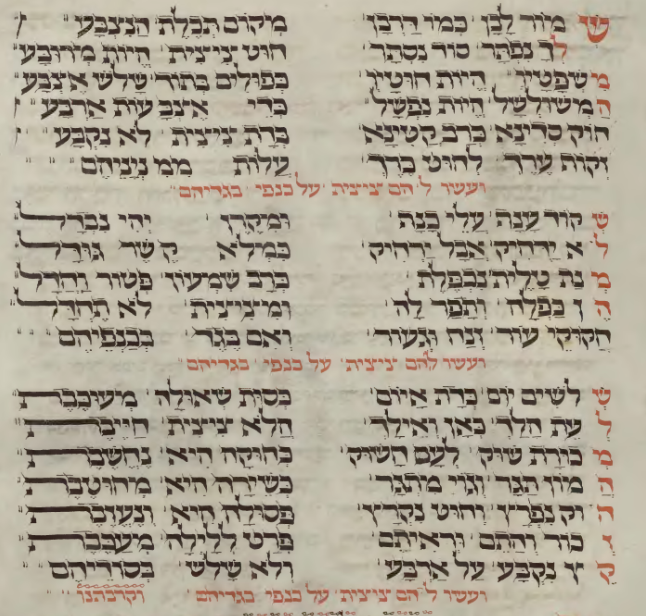 שמור לבן כמו מקום תכלת הנצבע
לך נפתר סוד נסתר חוט ציצית היות מרובע
משפטיך היות חוטיך כפולים בתוך שלש אצבע
המשולשל היות נפשל כדי אצבעות ארבע
חוק סדינא כרב קטינא ברת ציצית לא נקבע
זקות ערך לחוט כרך עלות ממנינהם
ועשו להם ציצית על כנפי בגדיהם
שקוד ענה עלי ומקרן יהי נבדל
לא ירחיק אבל ירחיק כמלא קשר גודל
מנת טלית נכפלת כרב שמעון פטור וחדל
הן כפלה ותפר לה ומציצית לא תחדל
חקוקי עור זנח וגעור ואם בגד בכנפיהם
ועשו להם ציצית על כנפי בגדיהם
שלשים יום ברת איום כסות שאולה מעוכבת
לעת הלך כאן ואילך הלא ציצית חייבת
מכורת שוק לעם חשוק כחוקה היא נחשבת
המון תגר וגוי מתגר כשירה היא מחוטבת
נפרץ וחוט נקרץ פסולה היא ונעזבת
זכור והתם וראיתם פרט ללילה מעכבת
קץ נקבע על ארבע ולא שלש בסודיהם
ועשו להם ציצית על כנפי בגדיהם וקרבתנו